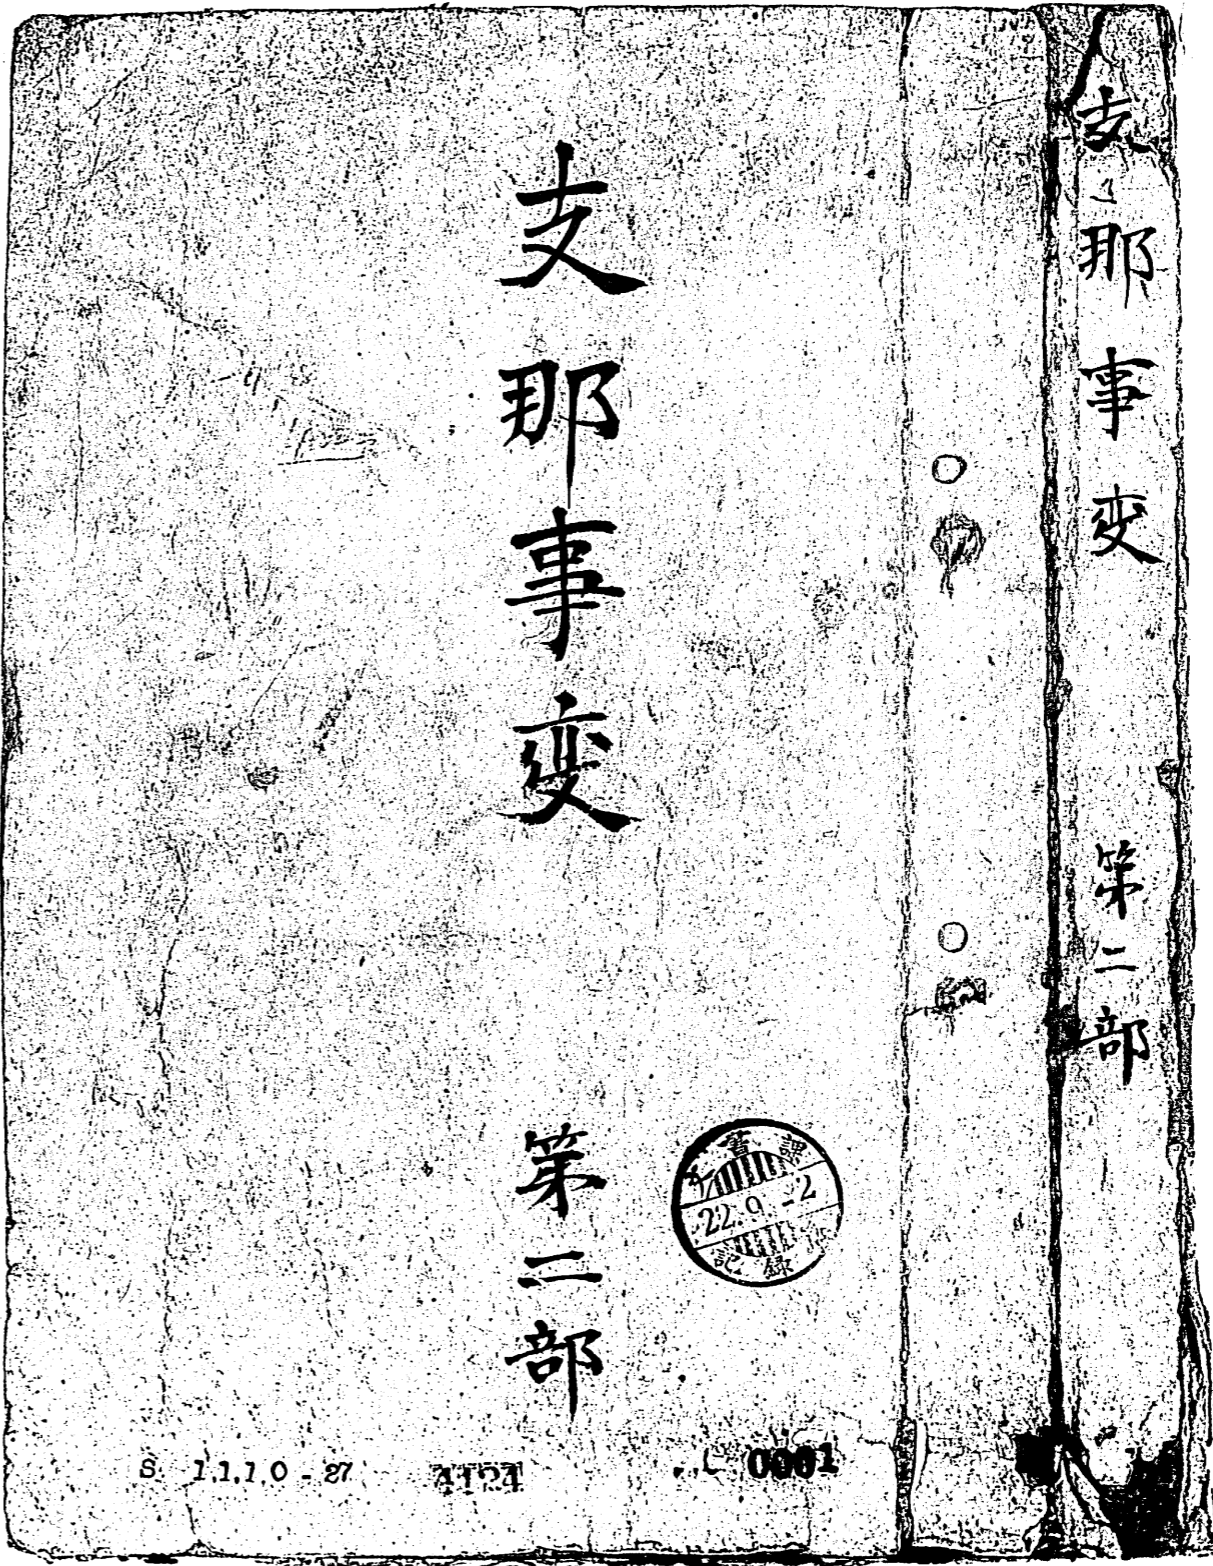 支那事変 第二部
支那事変 第二部
文書課
22.9.-2
記録
S 1.1.1.0-27
0001